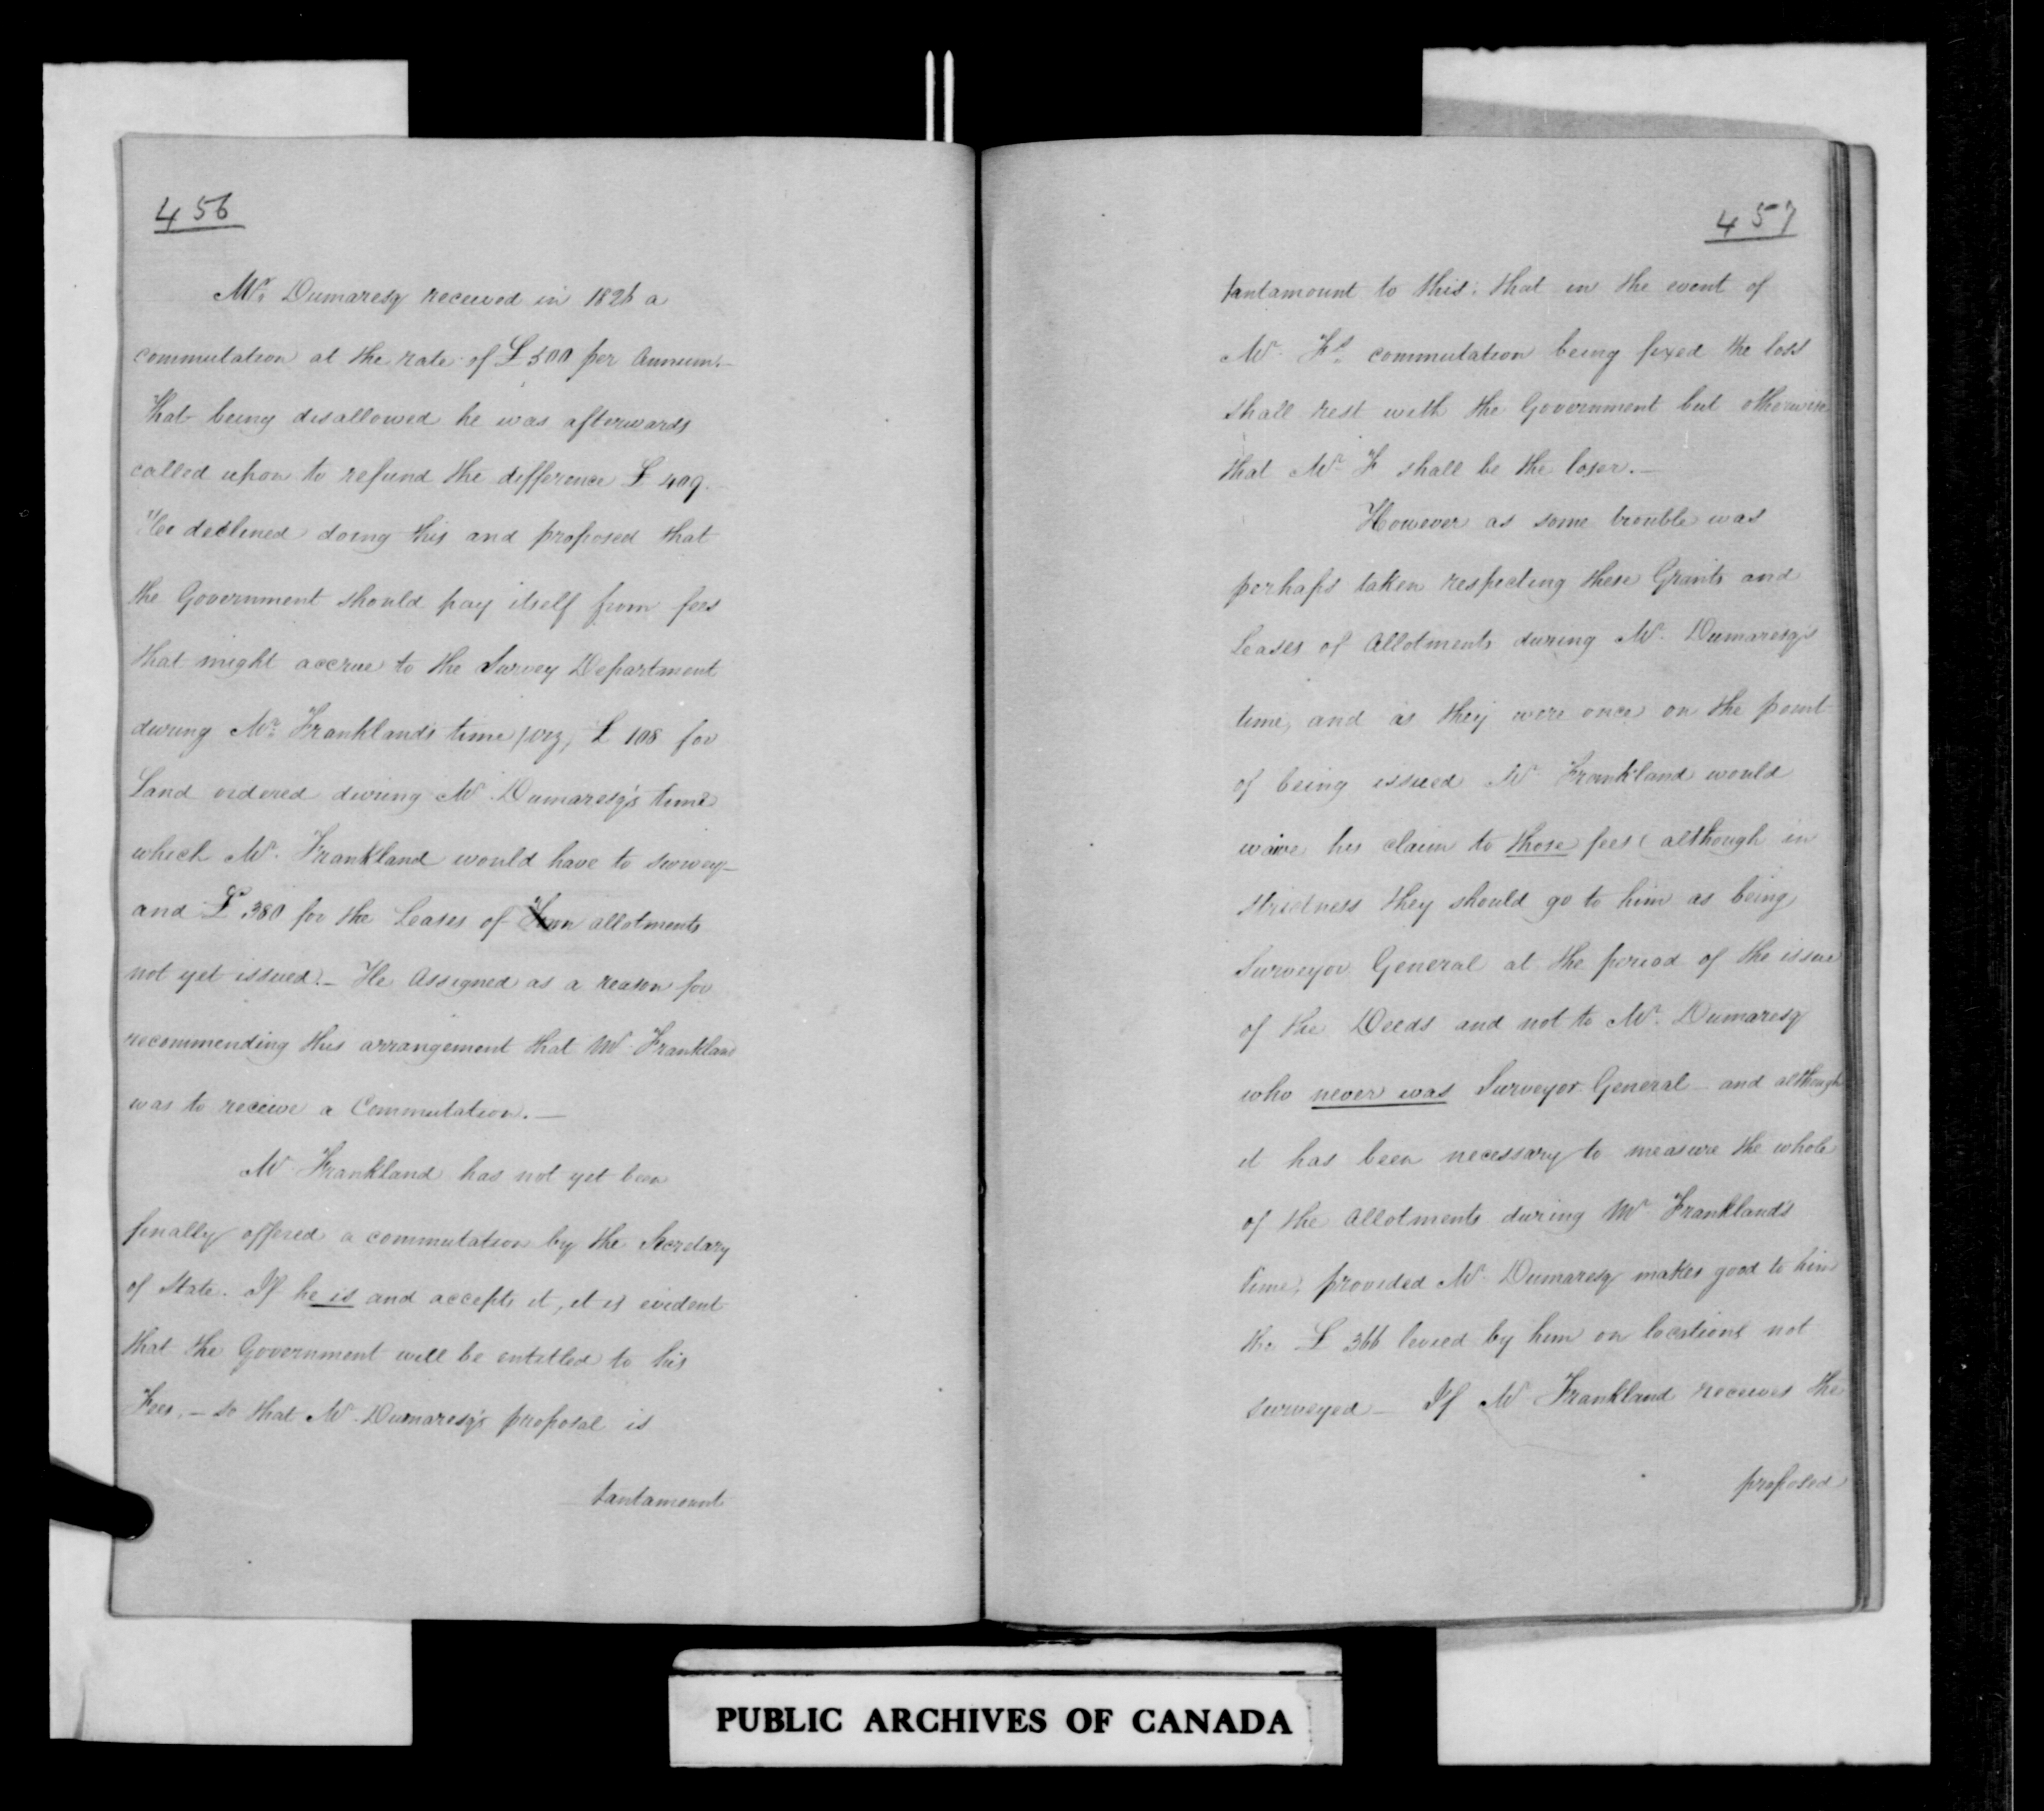 456
Mr. Dumaresq received in 1826 a
commutation at the rate of £500 per Annum.—
That being disallowed he was afterwards
called upon to refund the difference £409.—
He declined doing this and proposed that
the Government should pay itself from fees
that might accrue to the Survey Department
during Mr. Frankland's time /viz, £108 for
Land ordered during Mr. Dumaresq's time
which Mr. Frankland would have to survey—
and £380 for the Leases of Town allotments
not yet issued.— He Assigned as a reason for
recommending this arrangement that Mr Frankland
was to receive a Commutation.—
Mr Frankland has not yet been
finally offered a commutation by the Secretary
of State. If he is and accepts it, it is evident
that the Government will be entitled to his
Fees.— so that Mr. Dumaresq's proposal is
tantamount
457
tantamount to this: that in the event of
Mr. F's. commutation being fixed the loss
shall rest with the Government but otherwise
that Mr F shall be the loser.—
However as some trouble was
perhaps taken respecting these Grants and
Leases of Allotments during Mr. Dumaresq's
time, and as they were once on the point
of being issued Mr Frankland would
waive his claim to those fees (although in
strictness they should go to him as being
Surveyor General at the period of the issue
of the Deeds and not to Mr. Dumaresq
who never was Surveyor General— and although
it has been necessary to measure the whole
of the Allotments during Mr Frankland's
time, provided Mr. Dumaresq makes good to him
the £366 levied by him on locations not
surveyed— If Mr Frankland receives the
proposed
PUBLIC ARCHIVES OF CANADA